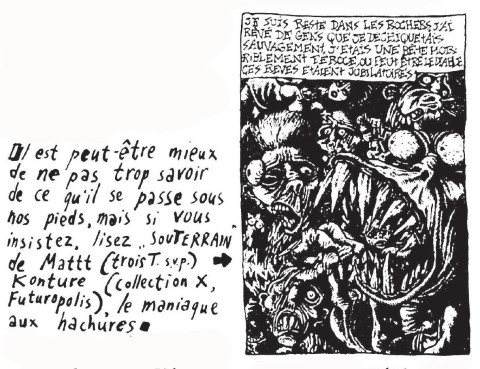 Il est peut-être mieux
de ne pas trop savoir
de ce qu'il se passe sous
nos pieds, mais si vous
insistez, lisez „SOUTERRAIN"
de Mattt (trois T. s.v.p.)
Konture (collection X,
Futuropolis), le maniaque
aux hachures
JE SUIS RESTE DANS LES ROCHERS, J'AI
RÊVÉ DE GENS QUE JE DECHIQUETAIS
SAUVAGEMENT, J'ETAIS UNE BÊTE HOR-
RIBLEMENT FEROCE, OU PEUT ÊTRE LE DIABLE
CES REVES ETAIENT JUBILATOIRES